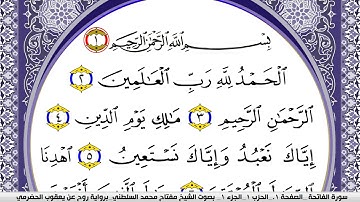 بِسْمِ ٱللَّهِ ٱلرَّحْمَٰنِ ٱلرَّحِيمِ ١
ٱلْحَمْدُ لِلَّهِ رَبِّ ٱلْعَٰلَمِينَ ٢
ٱلرَّحْمَٰنِ ٱلرَّحِيمِ ٣ مَٰلِكِ يَوْمِ ٱلدِّينِ ٤
إِيَّاكَ نَعْبُدُ وَإِيَّاكَ نَسْتَعِينُ ٥ ٱهْدِنَا
سورة الفاتحة _ الصفحة ١ _ الحزب ١ _ الجزء ١ _ بصوت الشيخ مفتاح محمد السلطني _ برواية روح عن يعقوب الحضرمي